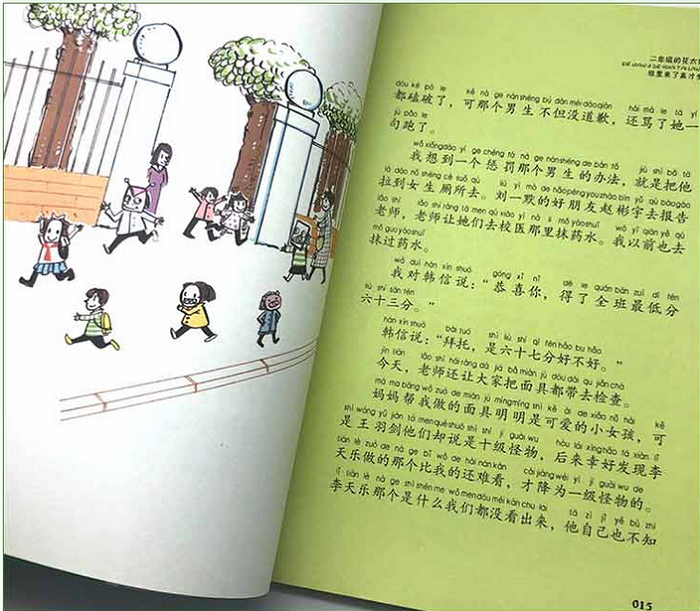 二年级的花衣
班里来了高才
dōu kē pò le kě nà ge nánshēng bú dàn méi dàoqiàn hái mà le tā yí
都磕破了,可那个男生不但没道歉,还骂了她一
jù pǎo le
句跑了。
wǒ xiǎngdào yí ge chéng fá nà ge nánshēng de bàn fǎ jiù shì bǎ tā
我想到一个惩罚那个男生的办法,就是把他
lā dào nǚ shēng cè suǒ qù liú yì mò de hǎopéng yǒuzhào bīn yǔ qù bàogào
拉到女生厕所去。刘一默的好朋友赵彬宇去报告
lǎo shī lǎo shī ràng tā men qù xiào yī nà lǐ mǒ yàoshuǐ wǒ yǐ qián yě qù
老师,老师让她们去校医那里抹药水。我以前也去
mǒ guo yàoshuǐ
抹过药水。
wǒ duì hán xìn shuō gōng xǐ nǐ dé le quán bān zuì dī fēn
我对韩信说:“恭喜你,得了全班最低分
liù shí sān fēn
六十三分。”
hán xìn shuō bài tuō shì liù shí qī fēn hǎo bu hǎo
韩信说:“拜托,是六十七分好不好。”
jīn tiān lǎo shī hái ràng dà jiā bǎ miàn jù dōu dài qù jiǎn chá
今天,老师还让大家把面具都带去检查。
mā ma bāng wǒ zuò de miàn jù míngmíng shì kě ài de xiǎo nǚ hái kě
妈妈帮我做的面具明明是可爱的小女孩,可
shì wáng yǔ jiàn tā men què shuō shì shí jí guài wu hòu lái xìnghǎo fā xiàn lǐ
是王羽剑他们却说是十级怪物,后来幸好发现李
tiān lè zuò de nà ge bǐ wǒ de hái nán kàn cái jiàng wéi yī jí guài wu de
天乐做的那个比我的还难看,才降为一级怪物的。
lǐ tiān lè nà ge shì shén me wǒ men dōu méi kàn chu lai tā zì jǐ yě bù zhī
李天乐那个是什么我们都没看出来,他自己也不知
015